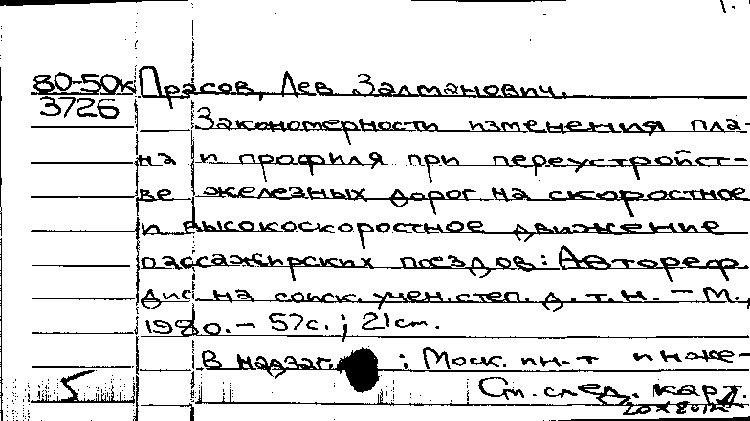 1.
80-50к Прасов, Лев Залманович.
3726
Закономерности изменения пла-
на и профиля при переустройст-
ве железных дорог на скоростное
и высокоскоростное движение
пассажирских поездов: Автореф.
дис. на соиск. учен. степ. д. т. н. – М.,
1980. – 57с.; 21см.
В надзаг.: Моск. ин-т инже-
5 См. след. карт.